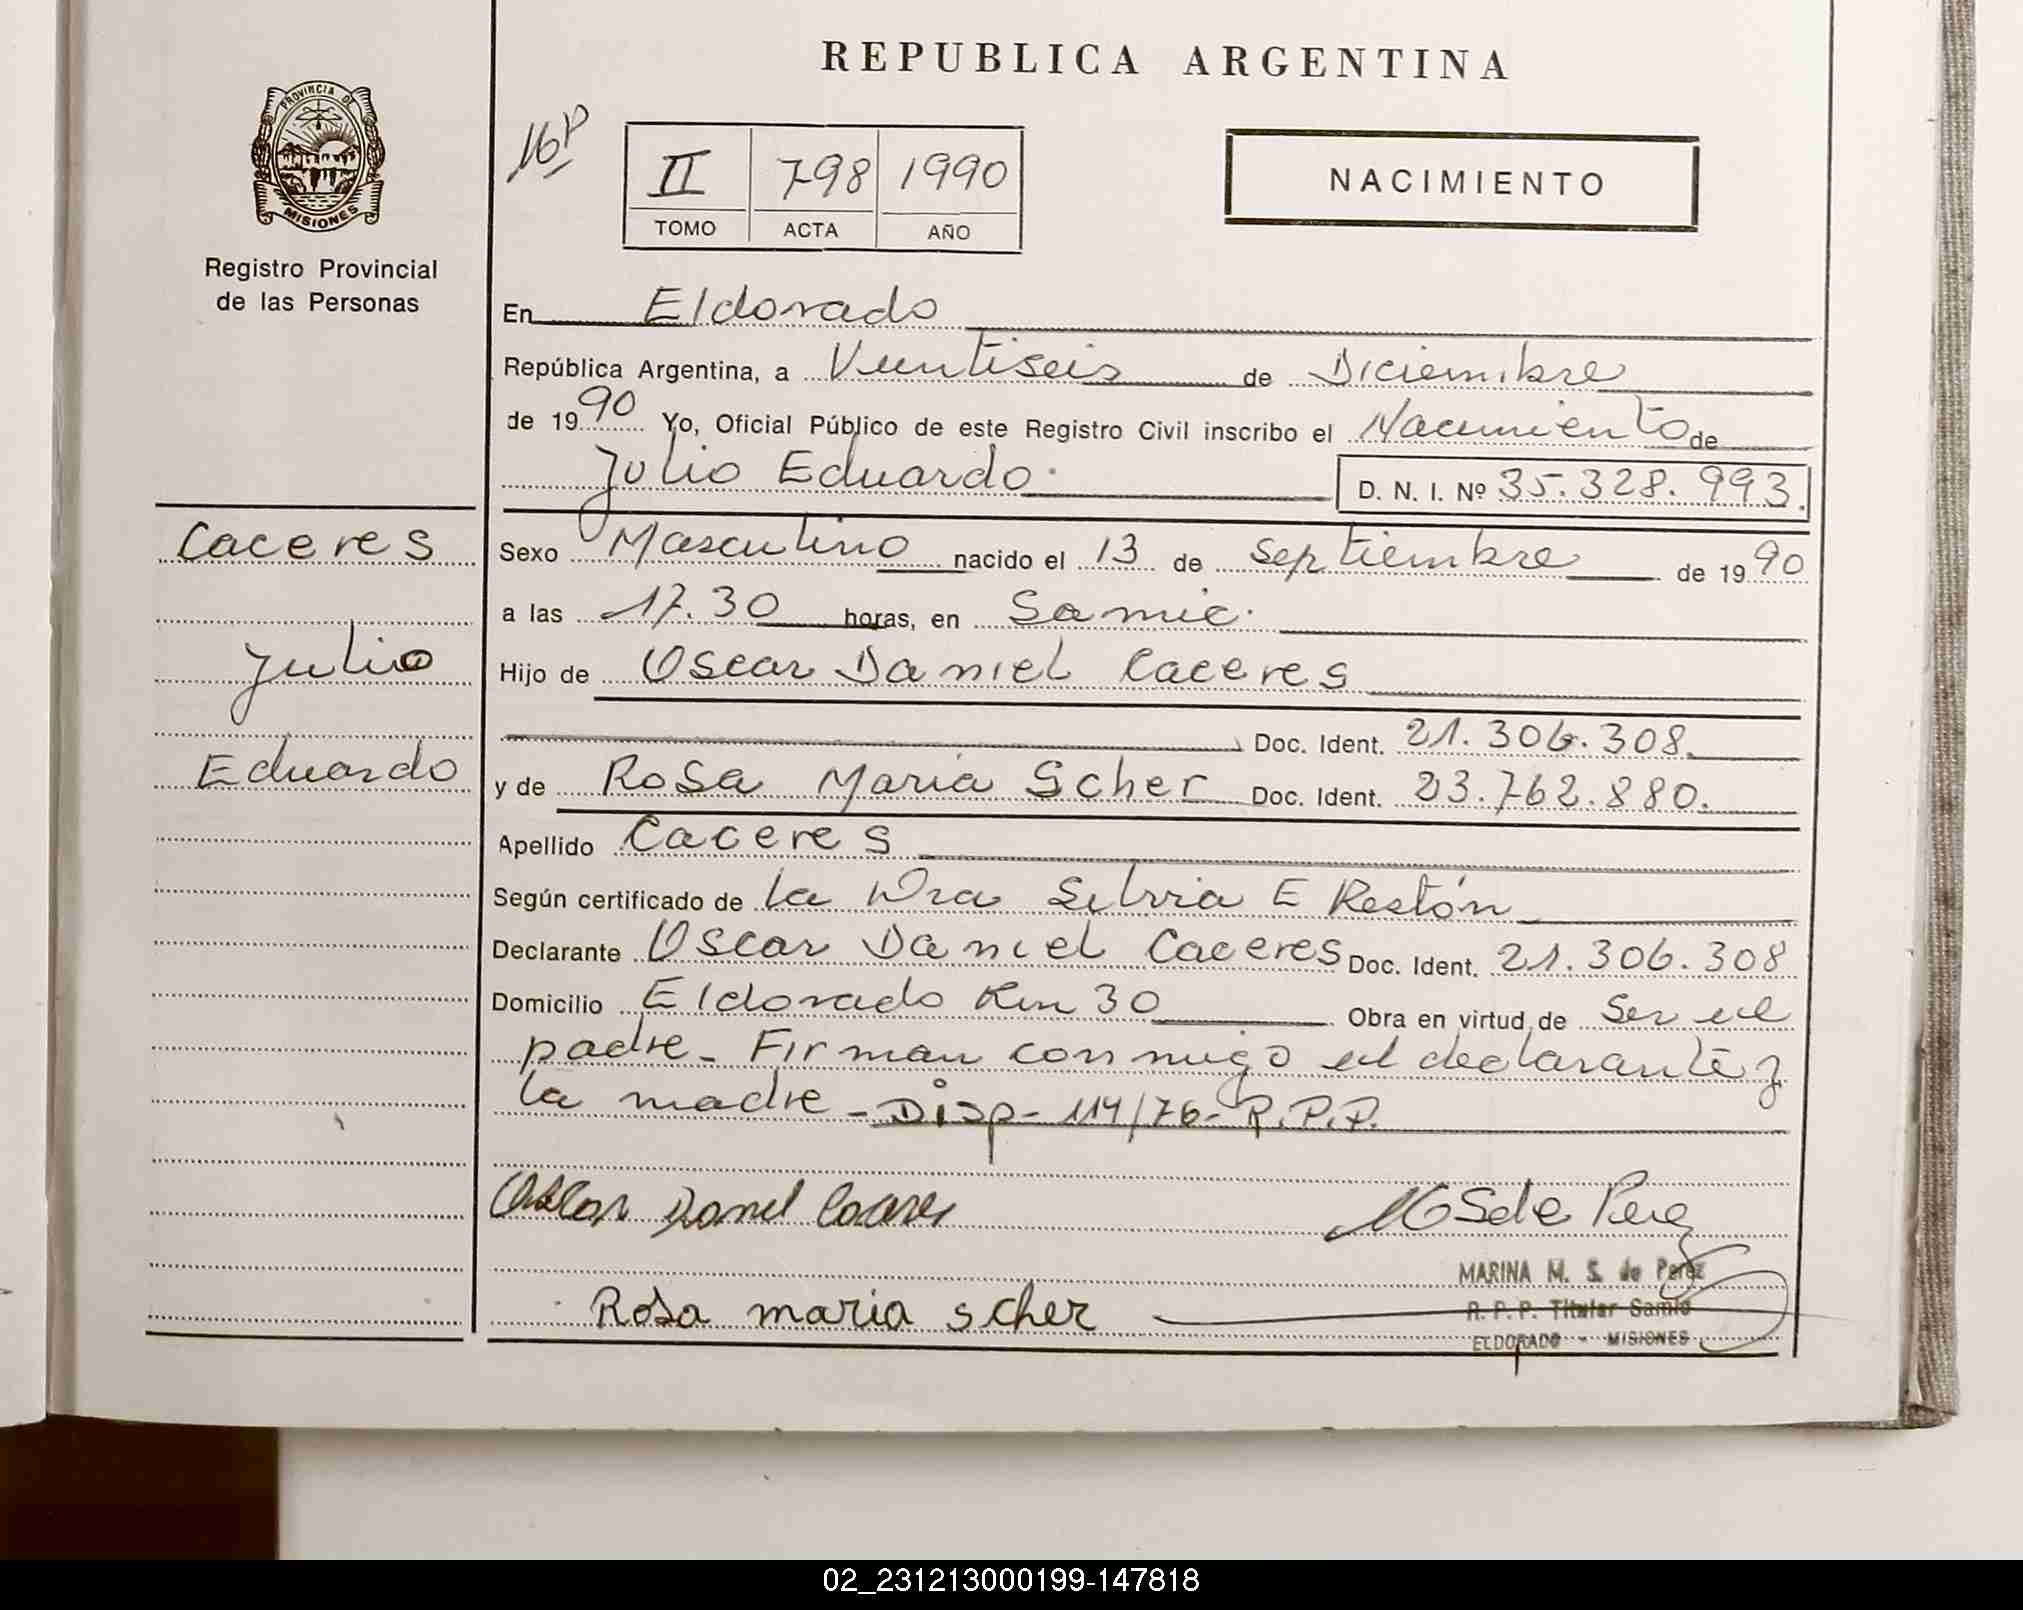 REPUBLICA ARGENTINA
PROVINCIA DE
MISIONES
Registro Provincial
de las Personas
16P
II 798 1990
TOMO ACTA AÑO
NACIMIENTO
En Eldorado
República Argentina, a Veintiseis de Diciembre
de 1990 Yo, Oficial Público de este Registro Civil inscribo el Nacimiento de
Julio Eduardo. D. N. I. Nº 35.328.993.
Caceres
Julio
Eduardo
Sexo Masculino nacido el 13 de Septiembre de 1990
a las 17.30 horas, en Samic.
Hijo de Oscar Daniel Caceres
Doc. Ident. 21.306.308.
y de Rosa Maria Scher Doc. Ident. 23.762.880.
Apellido Caceres
Según certificado de la Dra Silvia E Restón
Declarante Oscar Daniel Caceres Doc. Ident. 21.306.308
Domicilio Eldorado Km 30 Obra en virtud de Ser el
padre - Firman conmigo el declarante y
la madre - Disp - 114/76 - R.P.P.
Oscar Daniel Caceres
M S de Perez
MARINA M. S. de Perez
R. P. P. Titular Samic
ELDORADO - MISIONES
Rosa maria scher
02_231213000199-147818